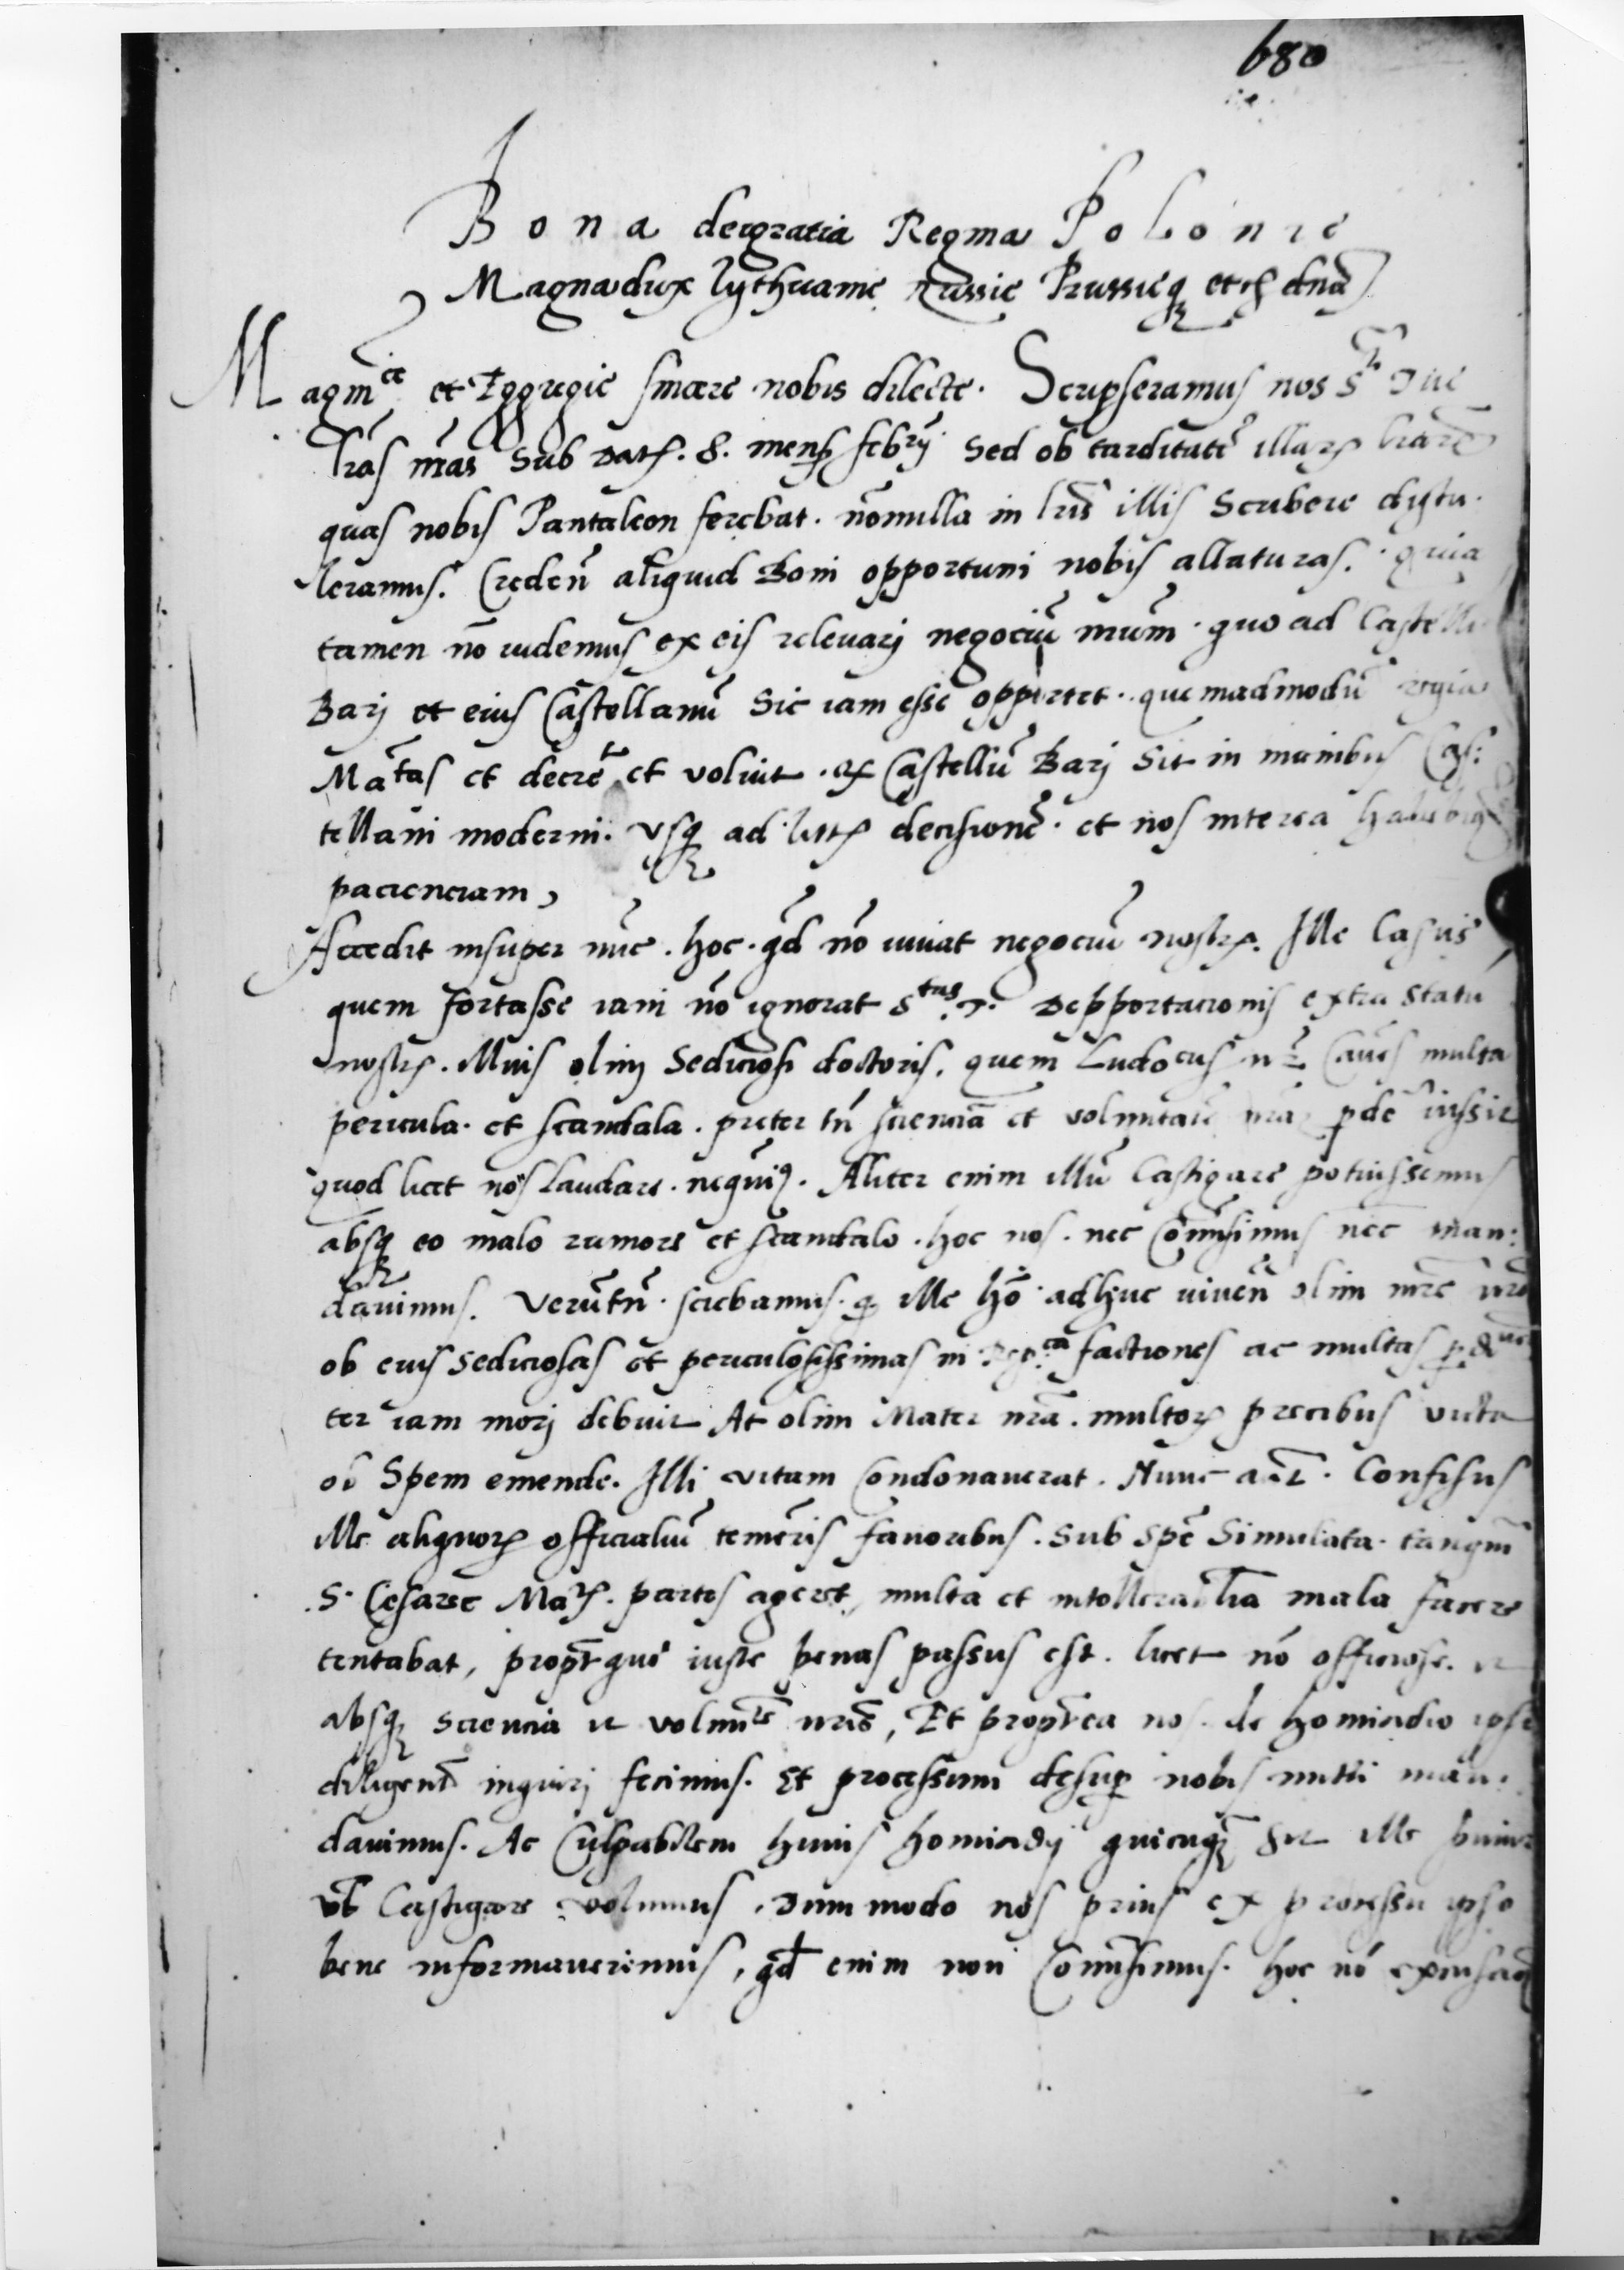 680
Bona dei gratia Regina Polonie
Magna dux lythuanie Russie Prussieq etc dna
Magnce et Eggregie sincere nobis dilecte. Scripseramus nos Sti Tue
lras nras sub dat. 8. mens febrij sed ob tarditate illar lrar
quas nobis Pantaleon ferebat. nonnulla in lris illis scribere distu-
leramus. Creden aliquid Boni opportuni nobis allaturas. quia
tamen no videmus ex eis relevarj negociu nrum. quo ad Castellu
Barj et eius Castellanu sic iam esse opportet. quemadmodu regia
Matas et decret et voluit. q Castellu Barj sit in manibus Cas:
tellani moderni. usq ad litis decisione. et nos interea
pacienciam,
Accedit insuper nuc. hoc. qd no iuvat negociu nostr. Ille Casus
quem fortasse iam no ignorat Stas T. Depportacionis extra statu
nostr. Illius olim sediciosi doctoris. quem Ludocus multa
pericula. et scandala. preter tn sciencia et volutate nra iussit
quod licet nos laudare. nequim. Aliter enim illu Castigare potuissemus
absq eo malo rumore et scandalo. hoc nos. nec Comisimus nec man:
davimus. Verutn. sciebamus. q Ille ho adhuc viven olim mre nra
ob eius sediciosas et periculosissimas in factiones ac multas
ter iam morj debuit At olim Mater nra. multor precibus victa
ob Spem emende. Illi vitam Condonaverat. Nunc aut. Confisus
Ille aliquor officialiu temeris favoribus. sub spe Simulata. tanqm
S. Cesaree Mat. partes ageret, multa et intollerabilia mala facere
tentabat, proptque iuste penas passus est. licet no officiose. et
absq sciencia et volunte nris, Et proptea nos. de homicidio ipso
diligent inquirj fecimus. Et processum desup nobis mitti man:
davimus. Ac Culpabilem huius homicidij quicuq sit ille
Castigare volumus, dummodo nos prius ex processu ipso
bene informaverimus, qd enim non Comisimus. hoc no